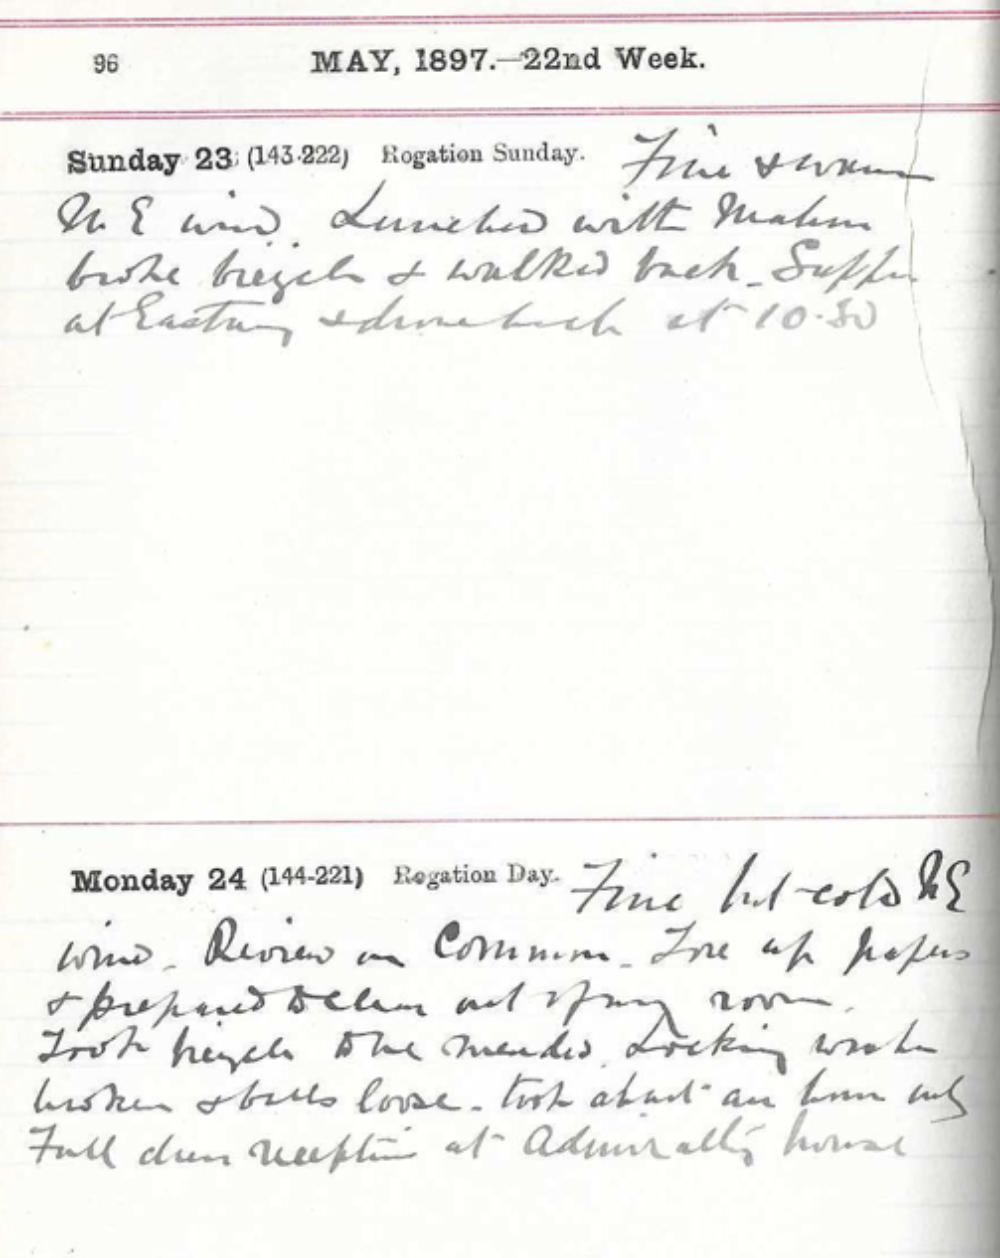 96 MAY, 1897.—22nd Week.
Sunday 23 (143-222) Rogation Sunday. Fine & warm
N. E wind. Lunched with
broke bicycle & walked back. Supper
at Eastney & drove back at 10.30
Monday 24 (144-221) Rogation Day. Fine but cold NE
wind. Review on Common. Tore up papers
& prepared to clear out of my room.
Took bicycle to be mended. Locking washer
broken & balls loose. took about an hour only
Full dress reception at Admiralty house